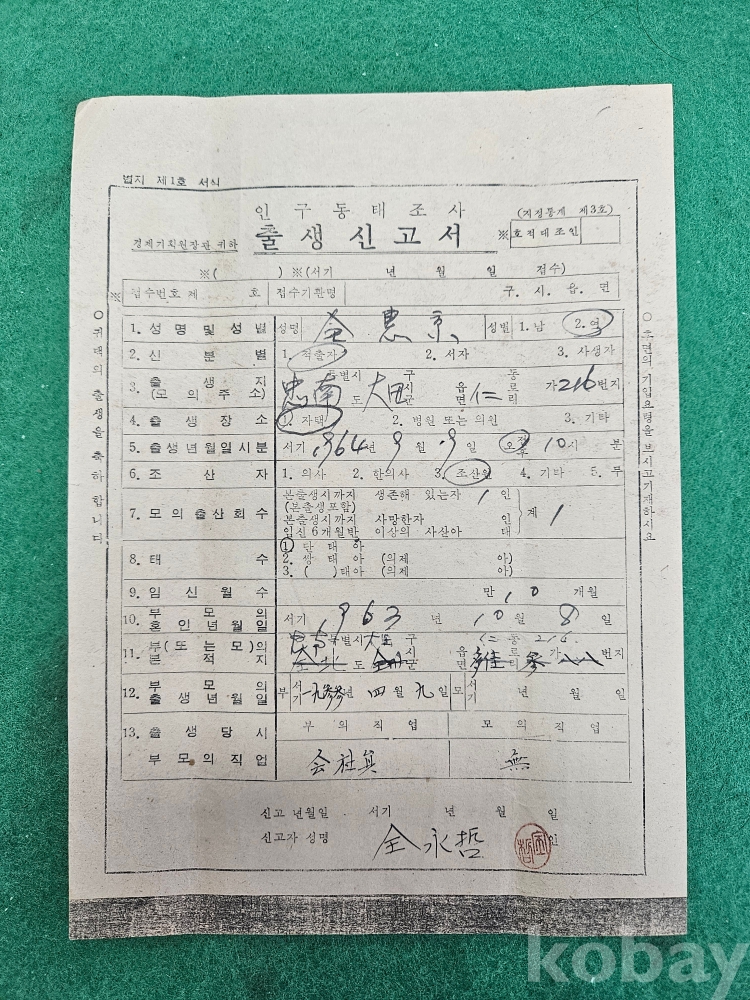 별지 제1호 서식
인구동태조사
(지정통계 제3호)
경제기획원장관 귀하
출생신고서
※ 호적대조인
※( ) ※(서기 년 월 일 접수)
※ 접수번호 제 호 접수기관명 구. 시. 읍. 면
○ 귀댁의 출생을 축하합니다
1. 성명 및 성별 성명 全惠京 성별 1. 남 2. 여
2. 신분별 1. 적출자 2. 서자 3. 사생가
3. 출생지 (모의 주소) 忠南 특별시 도 大田 구 시 군 읍 면 仁 동 로 리 가 216 번지
4. 출생장소 1. 자택 2. 병원 또는 의원 3. 기타
5. 출생년월일시분 서기 1964년 9월 9일 오전 후 10시 분
6. 조산자 1. 의사 2. 한의사 3. 조산원 4. 기타 5. 무
7. 모의 출산회수 본출생시까지 생존해 있는자 1 인
(본출생포함)
본출생시까지 사망한자 인
임신 6개월반 이상의 사살아 태
계 1
8. 태수 1. 단태아
2. 쌍태아 (의제 아)
3. ( )태아 (의제 아)
9. 임신월수 만 10 개월
10. 부모의 혼인년월일 서기 1963 년 10월 8일
11. 부(또는 모)의 본적지 특별시 도 구 시 군 읍 면 仁 동 216 가 리 번지
12. 부모의 출생년월일 부 서기 년 四월 九일 모 서기 년 월 일
13. 출생당시 부모의직업 부의직업 모의직업
会社員 無
신고 년월일 서기 년 월 일
신고자 성명 全永哲 인
kobay